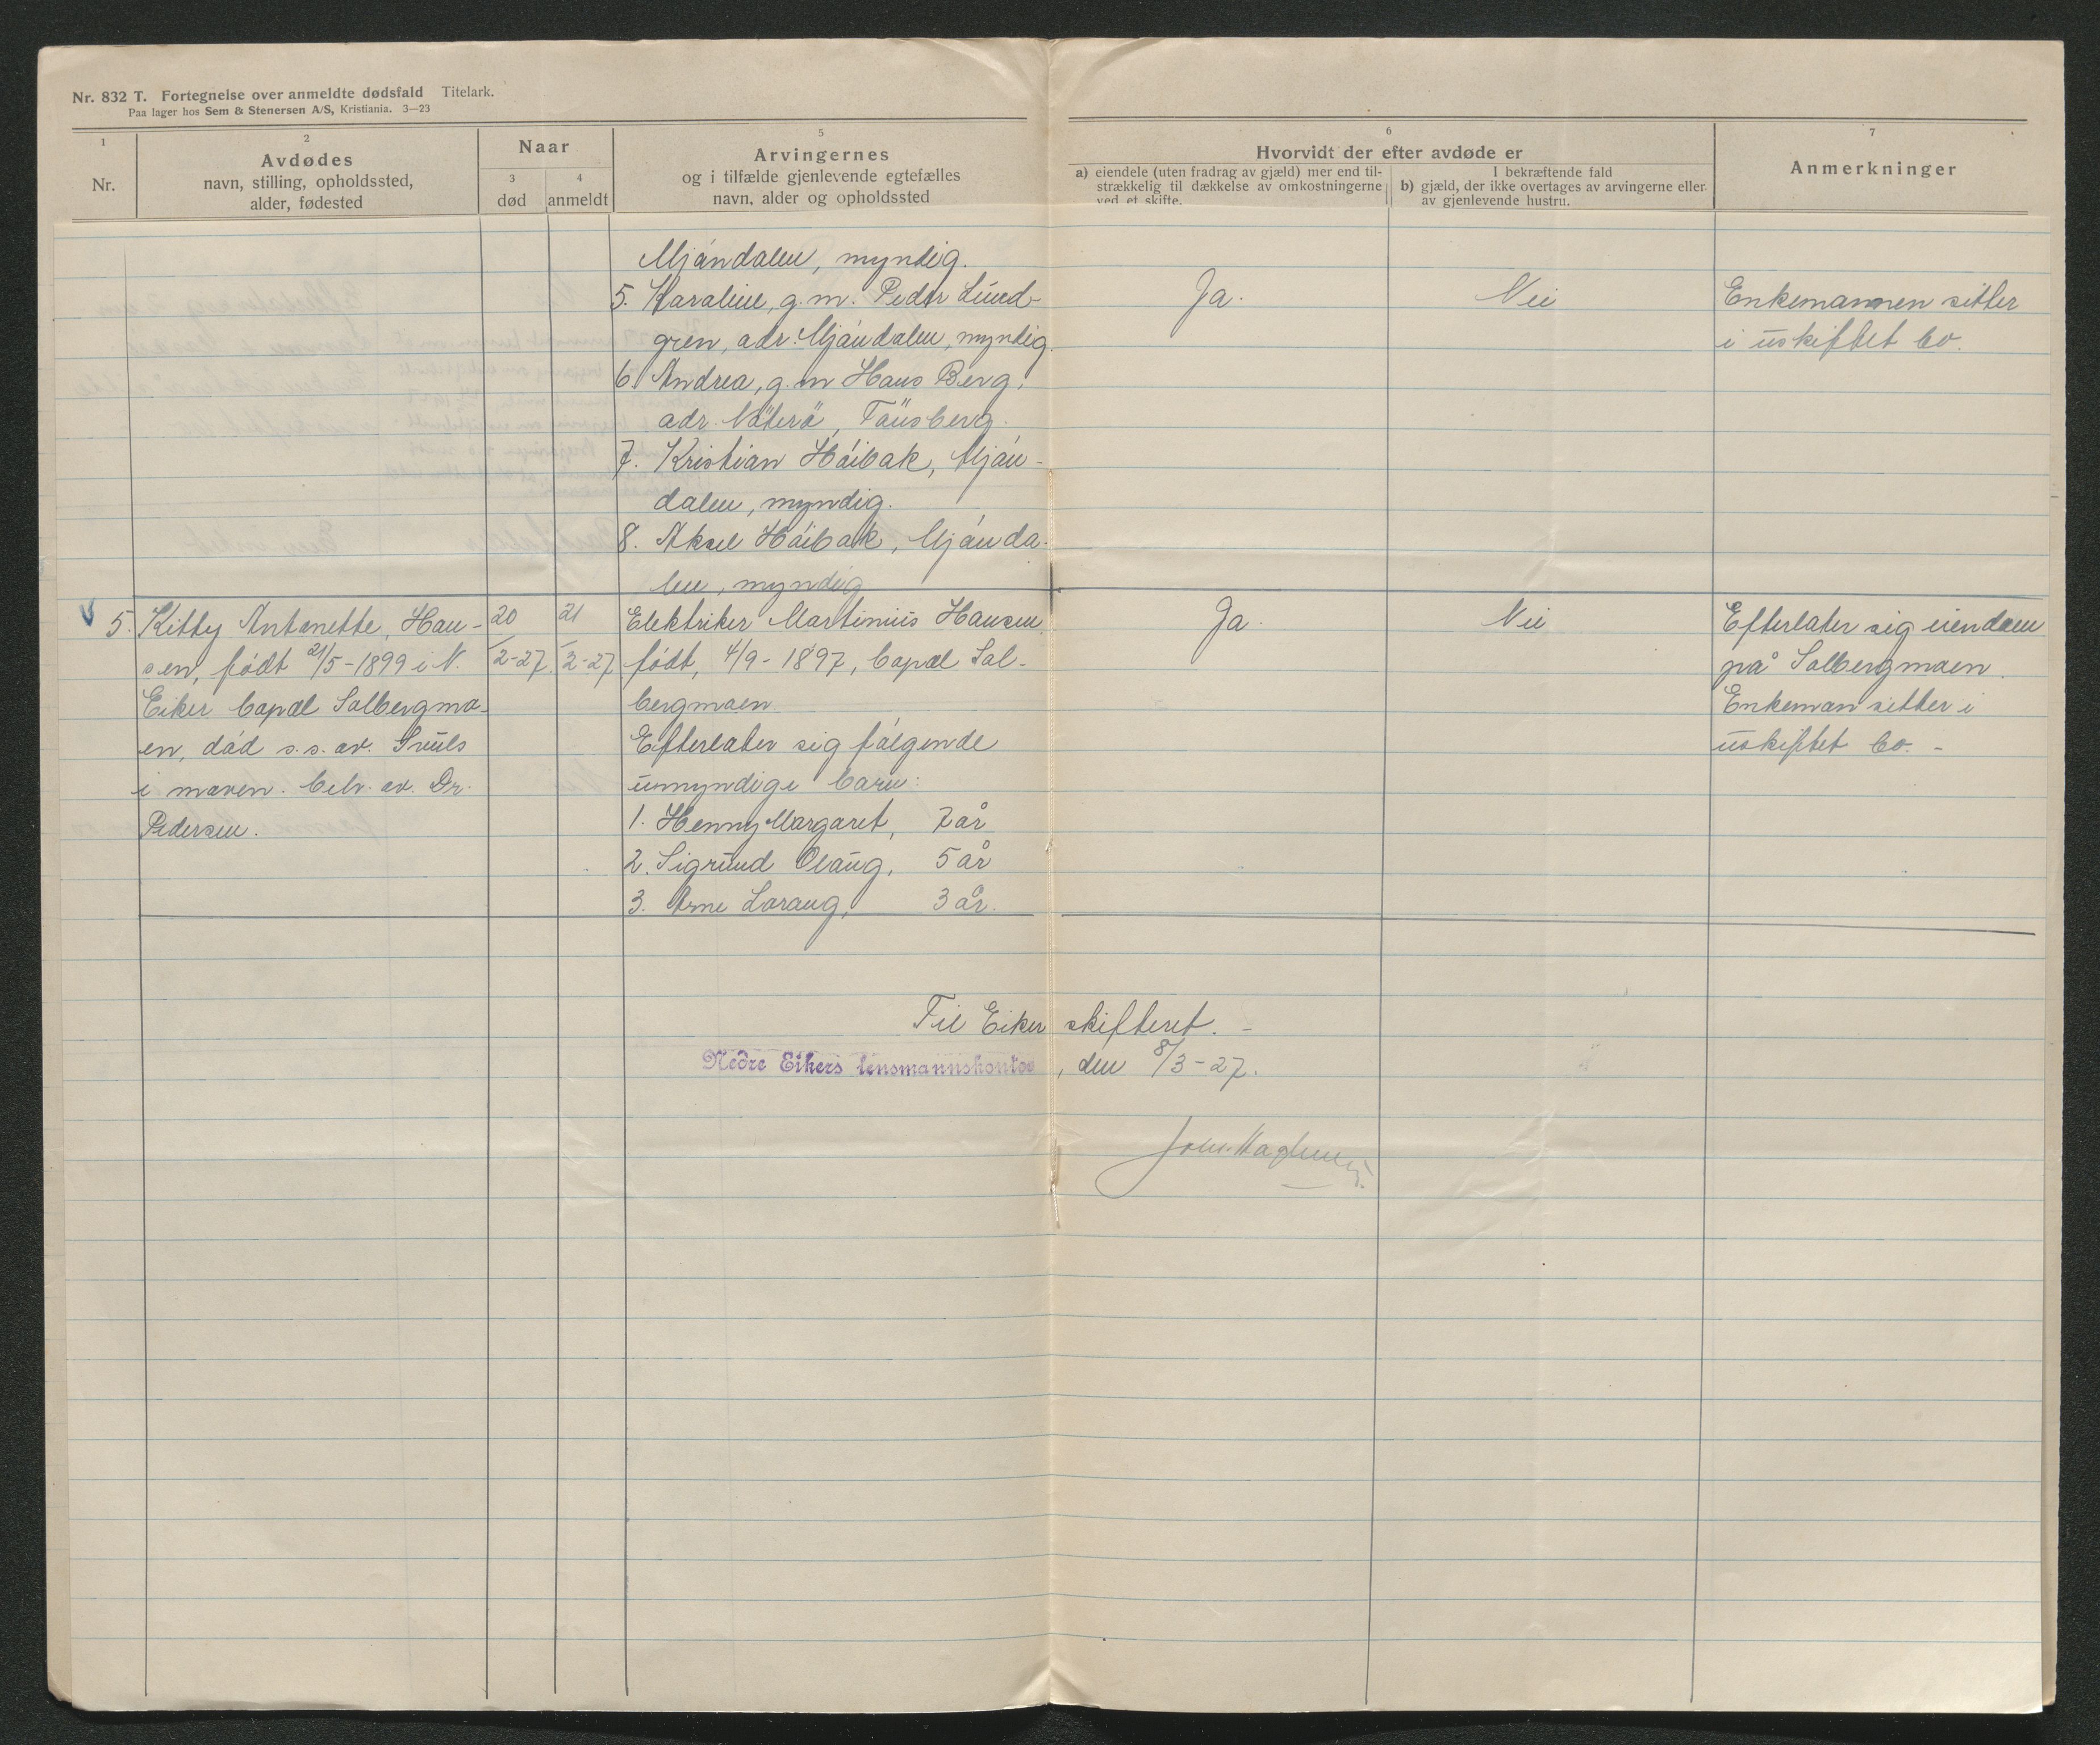 Nr. 832 T. Fortegnelse over anmeldte dødsfald Titelark.
Paa lager hos Sem & Stenersen A/S, Kristiania. 3—23
1
Nr.
2
Avdødes
navn, stilling, opholdssted,
alder, fødested
Naar
3
død
4
anmeldt
5
Arvingernes
og i tilfælde gjenlevende egtefælles
navn, alder og opholdssted
6
Hvorvidt der efter avdøde er
a) eiendele (uten fradrag av gjæld) mer end til-
strækkelig til dækkelse av omkostningerne
ved et skifte.
I bekræftende fald
b) gjæld, der ikke overtages av arvingerne eller
av gjenlevende hustru.
7
Anmerkninger
Mjóndalen, myndig.
5. Karoline, g.m. Peder Lund-
gren, adr. Mjóndalen, myndig.
6. Andrea, g.m Hans Berg,
adr. Nöterö, Tönsberg.
7. Kristian Hóibak, Mjón-
dalen, myndig.
8. Aksel Hóibak, Mjónda-
len, myndig
Ja.
Nei
Enkemannen sitter
i uskiftet bo.
5. Kitty Antonette, Han-
sen, fódt 21/5-1899 i N.
Eiker bopæl Solbergmo-
en, dód s.s. av. Svuls
i maven. beh. av. Dr.
Pedersen.
20
/2-27.
21
/2-27
Elektriker Martinius Hansen
fódt, 4/9-1897, bopæl Sol-
bergmoen.
Efterlater sig fólgende
umyndige barn:
1. Henny Margaret, 7 år
2. Sigrund Olaug, 5 år
3. Arne Loraug, 3 år.
Ja.
Nei
Efterlater sig eiendom
på Solbergmoen.
Enkeman sitter i
uskiftet bo. -
Til Eiker skifteret. -
Nedre Eikers lensmannskontor, den 8/3-27.